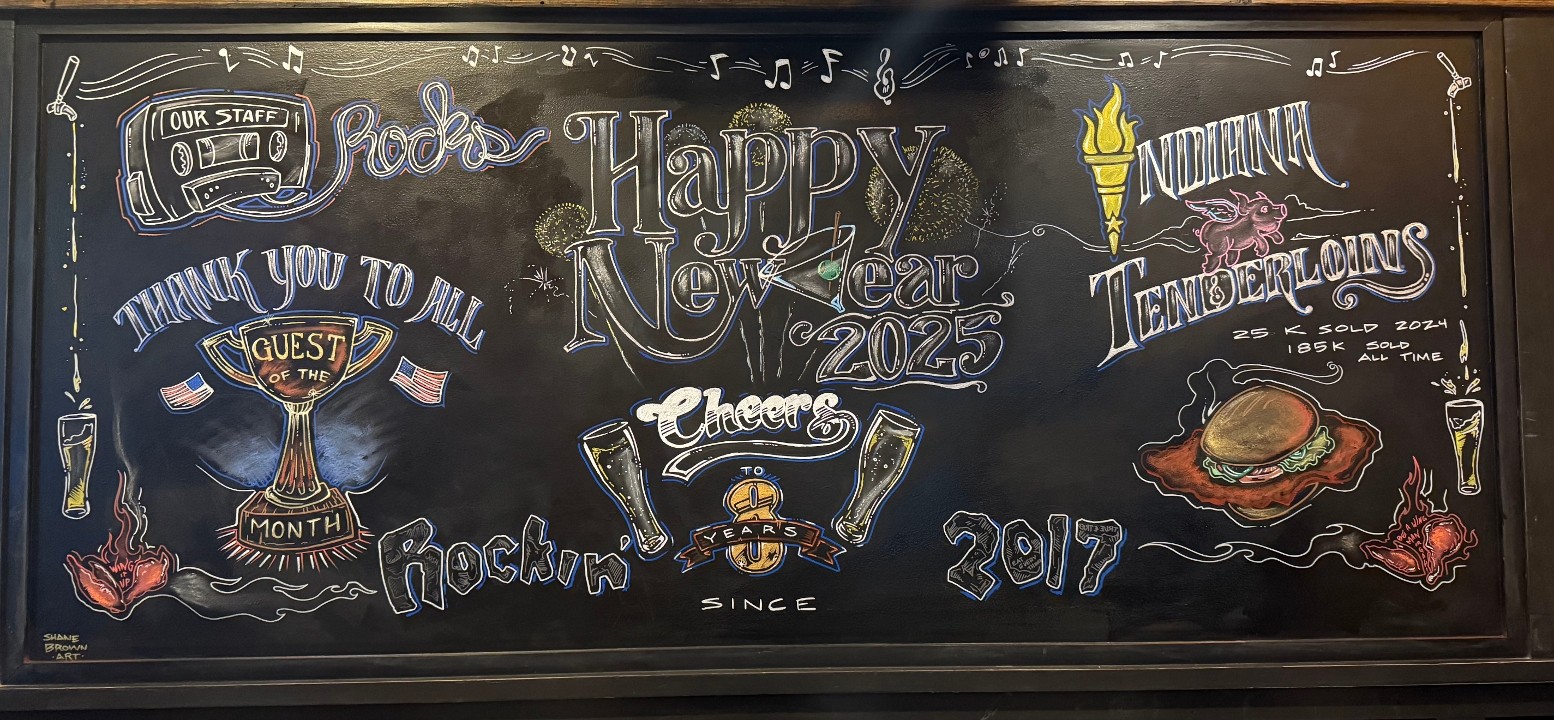 OUR STAFF
Rocks
THANK YOU TO ALL
GUEST
OF THE
MONTH
WING
IT
UP
SHANE
BROWN
·ART·
Happy
New Year
2025
Cheers
TO
8
YEARS
Rockin'
SINCE
2017
INDIANA
TENDERLOINS
25 K SOLD 2024
185K SOLD
ALL TIME